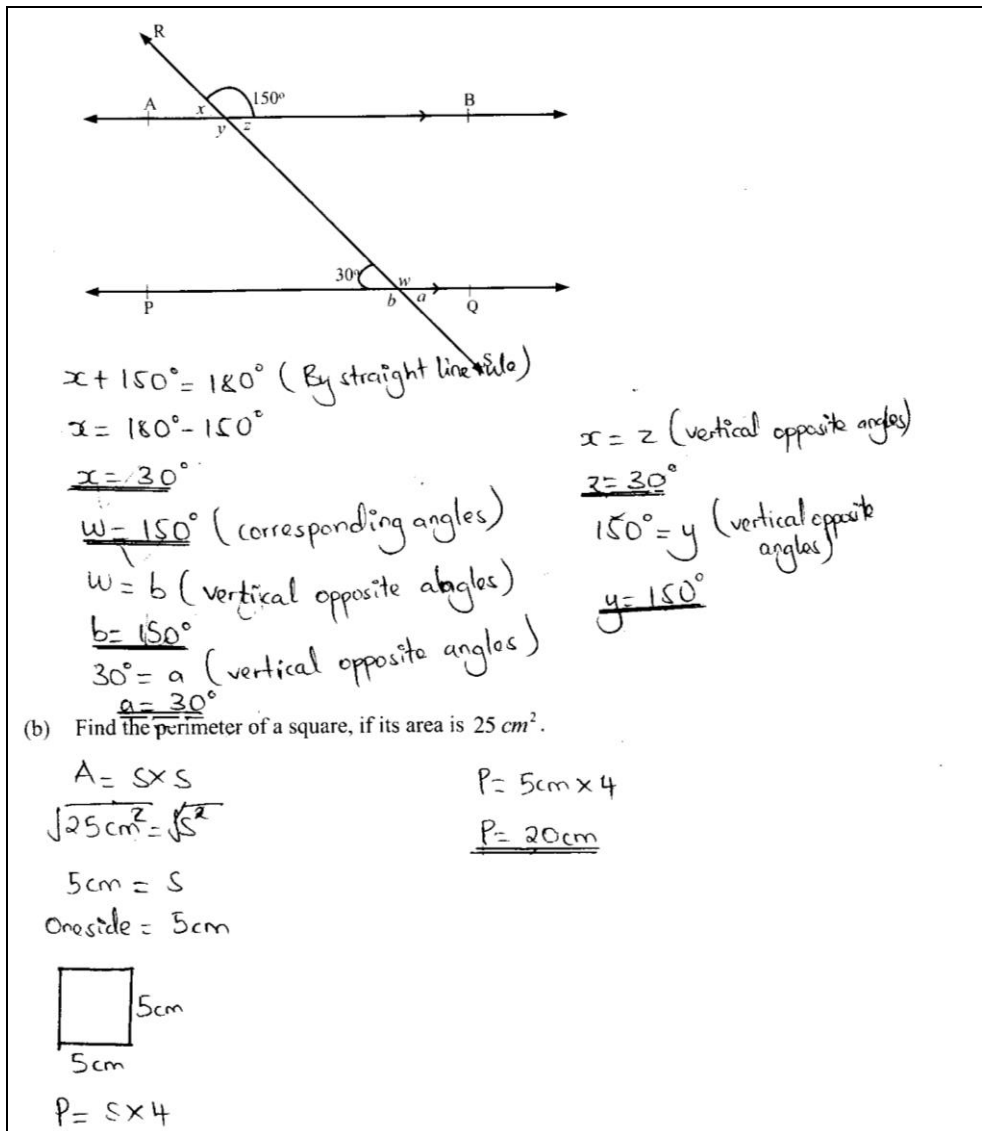 R
150°
A
x
B
y
z
30°
w
P
b
a
Q
S
x + 150° = 180° (By straight line rule)
x = 180° - 150°
x = 30°
w = 150° (corresponding angles)
w = b (vertical opposite angles)
b = 150°
30° = a (vertical opposite angles)
a = 30°
x = z (vertical opposite angles)
z = 30°
150° = y (vertical opposite
angles)
y = 150°
(b) Find the perimeter of a square, if its area is 25 cm².
A = S × S
√25cm² = √S²
5cm = S
One side = 5cm
5cm
5cm
P = S × 4
P = 5cm × 4
P = 20cm